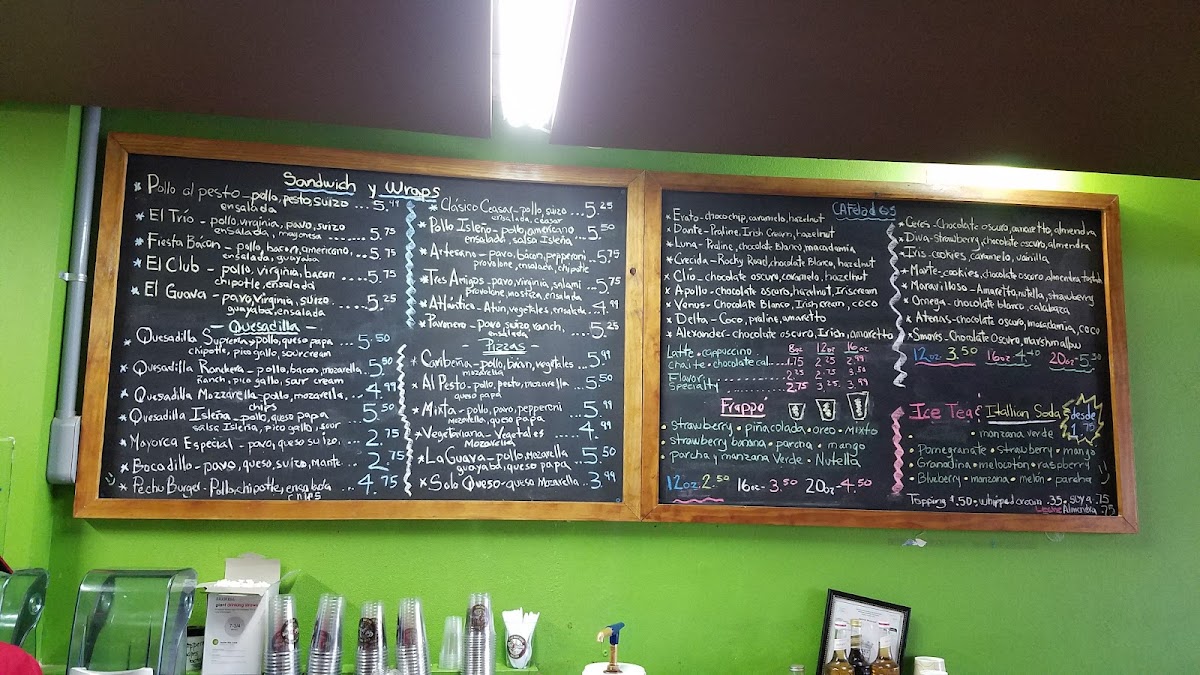 Sandwich y Wraps
* Pollo al pesto - pollo, pesto, suizo ... 5.49
ensalada
* El Trío - pollo, virginia, pavo, suizo
ensalada, mayonesa ... 5.75
* Fiesta Bacon - pollo, bacon, americano
ensalada, guayaba ... 5.75
* El Club - pollo, virginia, bacon
chipotle, ensalada ... 5.75
* El Guava - pavo, virginia, suizo
guayaba, ensalada ... 5.25
- Quesadilla -
* Quesadilla Suprema - pollo, queso papa ... 5.50
chipotle, pico gallo, sour cream
* Quesadilla Ranchera - pollo, bacon, mozarella ... 5.50
Ranch, pico gallo, sour cream
* Quesadilla Mozzarella - pollo, mozarella, ... 4.99
chips
* Quesadilla Isleña - pollo, queso papa ... 5.50
salsa Isleña, pico gallo, sour
* Mayorca Especial - pavo, queso suizo, ... 2.75
* Bocadillo - pavo, queso, suizo, mante. ... 2.75
* Pechu Burger - Pollo, chipotle, ensalada ... 4.75
chips
* Clásico Ceasar - pollo, suizo ... 5.25
ensalada, ceasar
* Pollo Isleño - pollo, americano ... 5.50
ensalada, salsa Isleña
* Artesano - pavo, bacon, pepperoni ... 5.75
provolone, ensalada, chipotle
* Tres Amigos - pavo, virginia, salami ... 5.75
provolone, mostaza, ensalada
* Atlántico - Atún, vegetales, ensalada ... 4.99
* Pavinero - pavo, suizo, ranch, ... 5.25
ensalada
- Pizzas -
* Caribeña - pollo, bacon, vegetales ... 5.99
mozarella
* Al Pesto - pollo, pesto, mozarella ... 5.50
queso papa
* Mixta - pollo, pavo, pepperoni ... 5.99
mozarella, queso papa
* Vegetariana - Vegetales ... 4.99
Mozarella
* La Guava - pollo, Mozarella ... 5.50
guayaba, queso papa
* Solo Queso - queso Mozarella ... 3.99
CAFelados
* Erato - choco chip, caramelo, hazelnut
* Dante - Praline, Irish Cream, hazelnut
* Luna - Praline, chocolate Blanco, macadamia
* Grecida - Rocky Road, chocolate Blanco, hazelnut
* Clío - chocolate oscuro, caramelo, hazelnut
* Apollo - chocolate oscuro, hazelnut, Iriscream
* Venus - Chocolate Blanco, Irish cream, coco
* Delta - Coco, praline, amaretto
* Alexander - chocolate oscuro, Irish, amaretto
* Ceres - Chocolate oscuro, amaretto, almendra
* Diva - strawberry, chocolate oscuro, almendra
* Iris - cookies, caramelo, vainilla
* Marte - cookies, chocolate oscuro, almendra
* Maravilloso - Amaretto, nutella, strawberry
* Omega - chocolate blanco, calabaza
* Atenas - chocolate oscuro, macadamia, coco
* Smores - Chocolate Oscuro, marshmallow
12oz 3.50 16oz 4.40 20oz - 5.30
8oz 12oz 16oz
Latte • cappuccino
chaite • chocolate cal. 1.75 2.25 2.99
Flavor 2.25 2.75 3.50
Specialty 2.75 3.25 3.99
Frappé
• strawberry • piña colada • oreo • Mixto
strawberry banana • parcha • mango
• parcha y manzana verde • Nutella
12oz - 2.50 16oz - 3.50 20oz - 4.50
Ice Tea & Itallian Soda
desde
1.75
• manzana verde
• Pomegranate • strawberry • mango
• Granadina • melocoton • raspberry
• Blueberry • manzana • melón • parcha
Topping $.50 • whipped cream .35 • soya .75
Leche Almendra .75